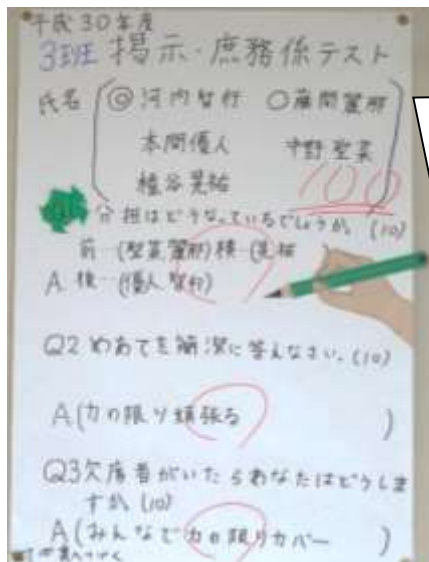 平成30年度
3班 掲示・庶務係テスト
氏名 ◎河内智行 ○藤間麗那
本間優人 中野聖菜
植谷晃祐
100
分担はどうなっているでしょうか。(10)
前…(聖菜麗那)横…(晃祐
A 後…(優人智行)
Q2 めあてを簡潔に答えなさい。(10)
A(力の限り頑張る )
Q3欠席者がいたらあなたはどうしま
すか。(10)
A(みんなで力の限りカバー )